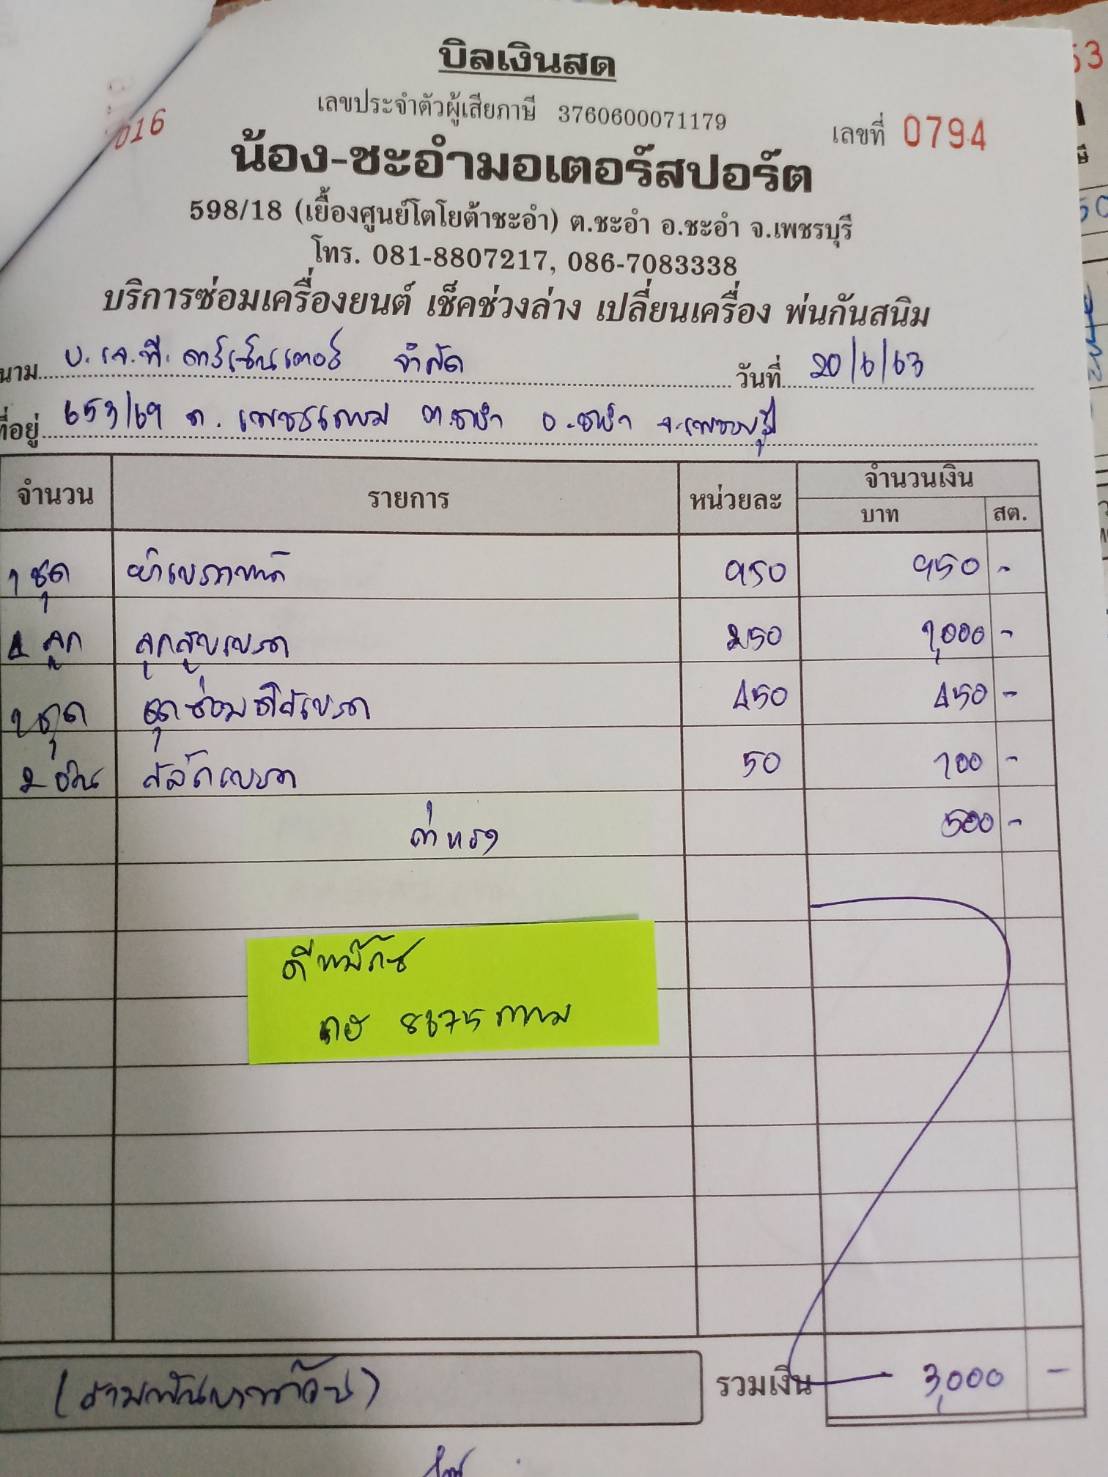 บิลเงินสด
เลขประจำตัวผู้เสียภาษี 3760600071179
016
เลขที่ 0794
น้อง-ชะอำมอเตอร์สปอร์ต
598/18 (เยื้องศูนย์โตโยต้าชะอำ) ต.ชะอำ อ.ชะอำ จ.เพชรบุรี
โทร. 081-8807217, 086-7083338
บริการซ่อมเครื่องยนต์ เช็คช่วงล่าง เปลี่ยนเครื่อง พ่นกันสนิม
นาม บ. เจ.ที. คาร์เซ็นเตอร์ จำกัด วันที่ 20/6/63
ที่อยู่ 653/69 ถ. เพชรเกษม ต.ชะอำ อ.ชะอำ จ.เพชรบุรี
จำนวน รายการ หน่วยละ จำนวนเงิน
บาท สต.
1 ชุด ผ้าเบรค 950 950 -
4 ลูก ลูกสูบเบรค 250 1,000 -
1 ชุด ชุดซ่อมดิสเบรค 450 450 -
2 อัน สลักเบรค 50 100 -
ค่าแรง 500 -
ดีแม๊กซ์
กข 8675
(สามพันบาทถ้วน) รวมเงิน 3,000 -